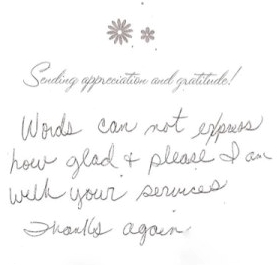 Sending appreciation and gratitude!
Words can not express
how glad & please I am
with your services
Thanks again.